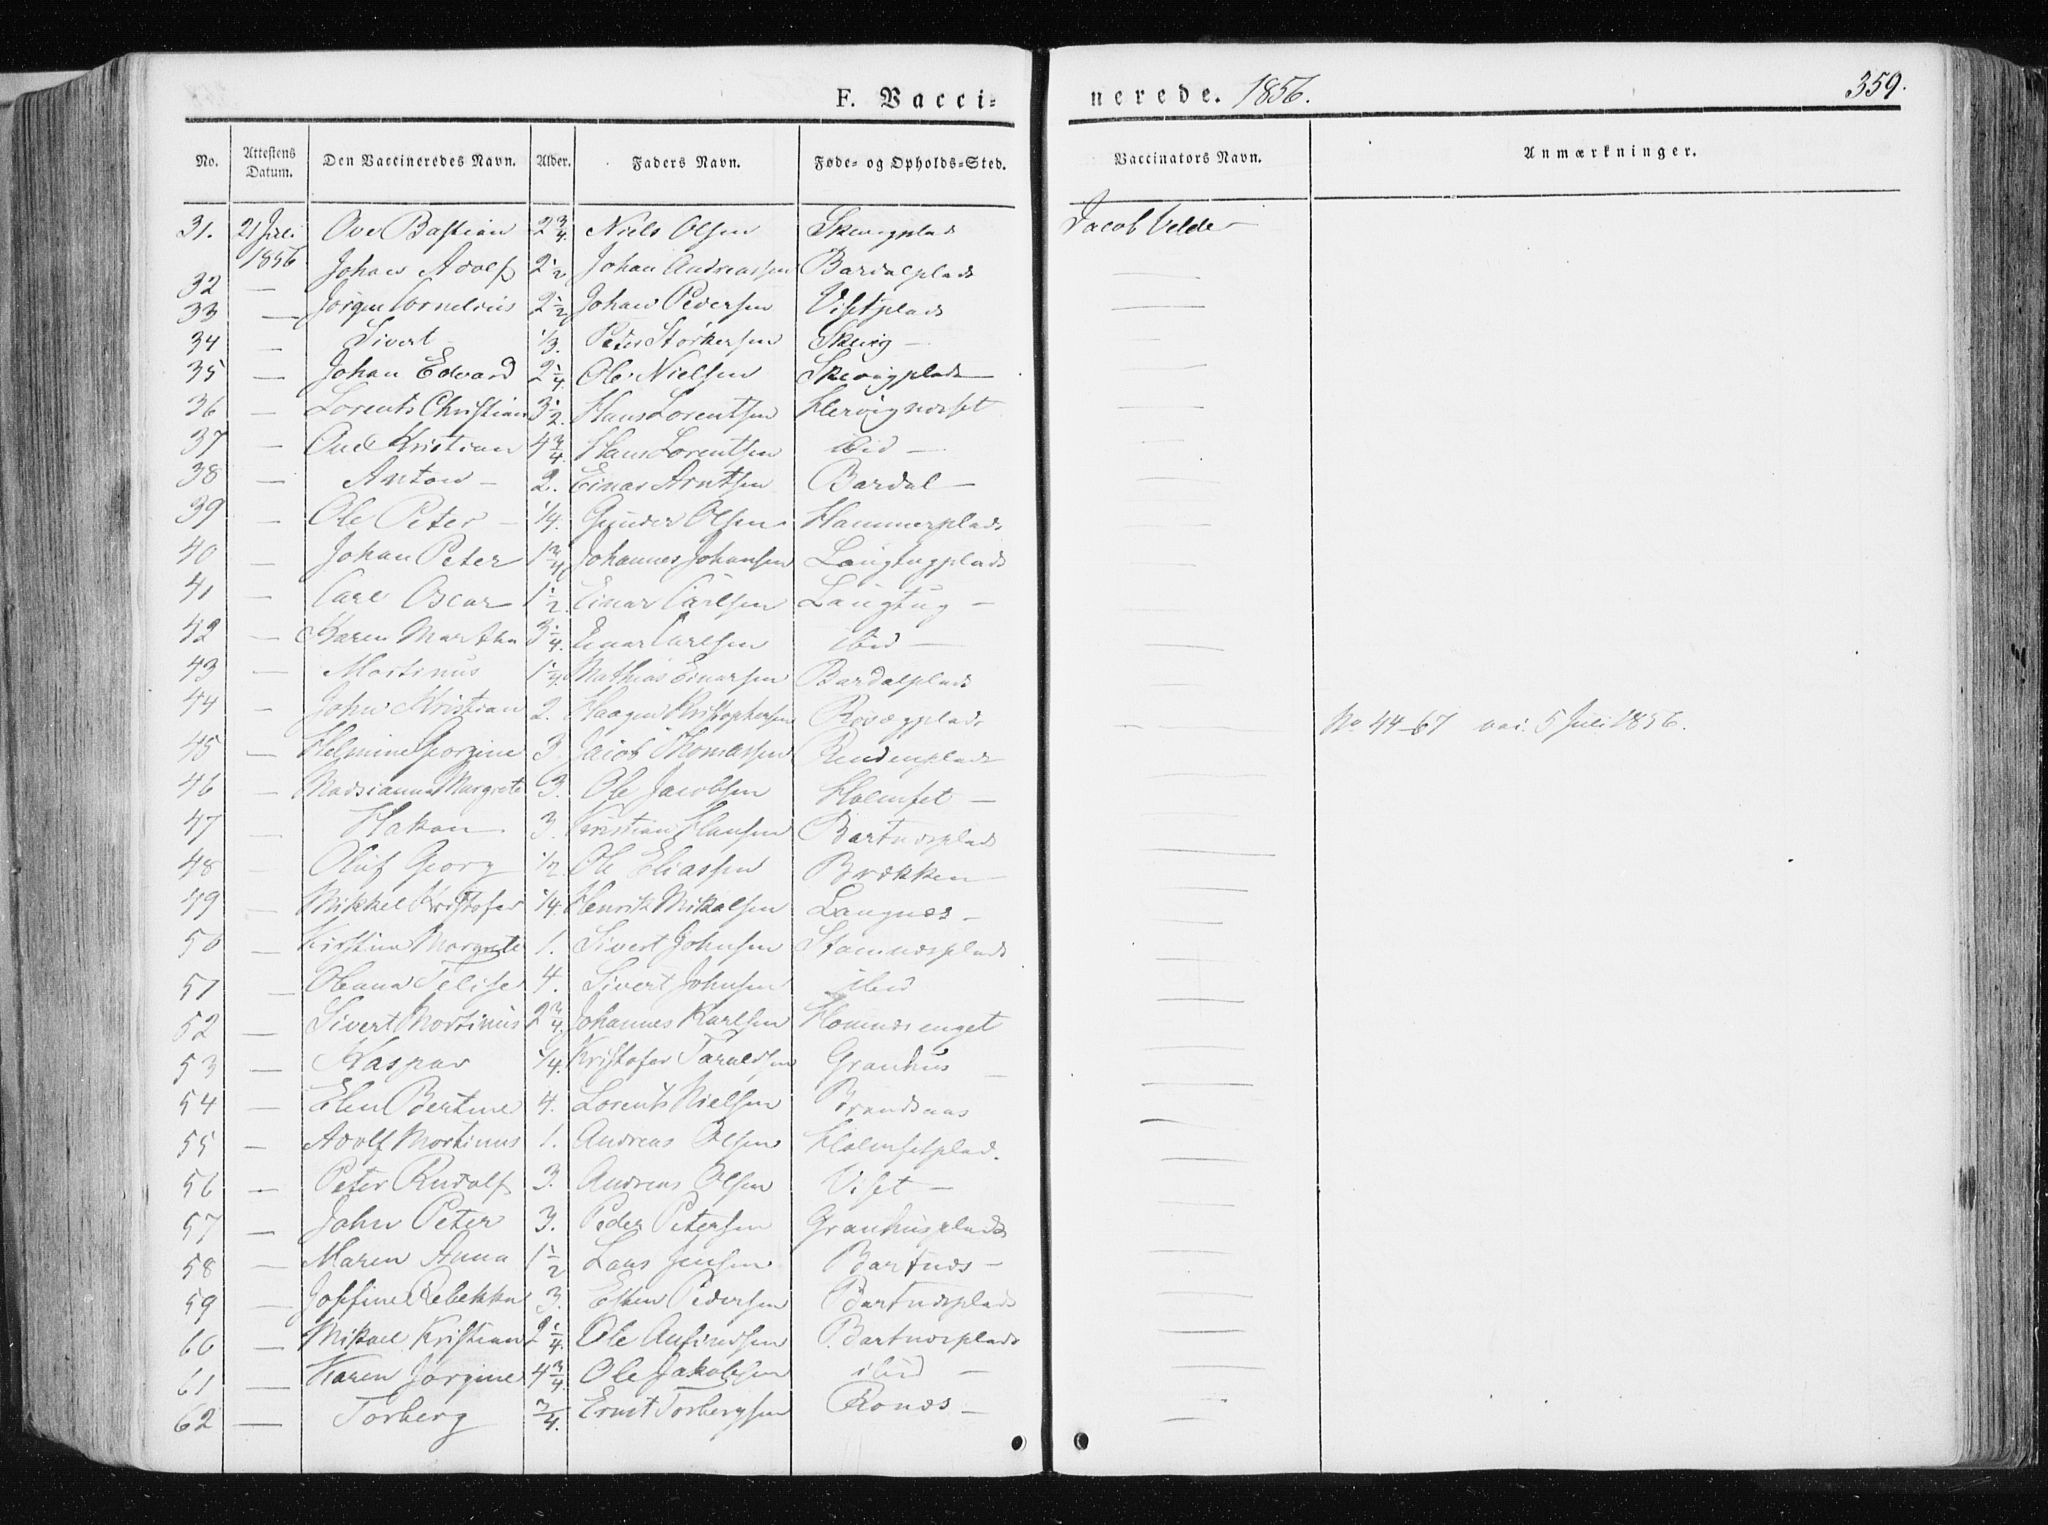 F. Vacci-
nerede. 1856.
359.
No. Attestens Datum. Den Vaccineredes Navn. Alder. Faders Navn. Føde- og Opholds-Sted. Vaccinators Navn. Anmærkninger.
31. 21 Juli 1856 Ove Bastian 2 3/4. Niels Olsen Skevigplads Jacob Velde
32 — Johan Adolf 2 1/2 Johan Andreassen Bardalplads —
33 — Jørgen Cornelius 2 1/2 Johan Pedersen Visetplads —
34 — Sivert 1/3. Peter Størkersen Skevig — —
35 — Johan Edvard 2 1/4. Ole Nielsen Skevigplads —
36 — Lorents Christian 3 1/2. Hans Lorentsen Hervignæsset —
37 — Kristian 4 3/4. Hans Lorentsen ibid — —
38 — Anton — 2. Einar Arntsen Bardal — —
39 — Ole Peter — 1/4. Gunder Olsen Hammerplads —
40 — Johan Peter 1 3/4 Johannes Johansen Langtugplads —
41 — Carl Oscar 1 1/2. Einar Carlsen Langtug — —
42 — Karen Martha 3 1/4. Einar Carlsen ibid — —
43 — Mortinus 1 Mathias Einarsen Bardalplads —
44 — John Kristian 2. Haagen Kristophersen — No 44-67 5 Juli 1856.
45 — Helmine Georgine 3. Jacob Thomassen —
46 — Madsianna Margrete 3. Ole Jacobsen Holmset — —
47 — Hakon 3. Kristian Hansen Bartnæsplads —
48 — Oluf Georg 1/2 Ole Eliassen Brækken — —
49 — Mikkel Kristofer 1/4. Henrik Mikalsen Langnes — —
50 — Kirstina Margrete 1. Sivert Johnsen Stamnæsplads —
51 — Olenna 4. Sivert Johnsen ibid —
52 — Sivert Mortinus 2 3/4. Johannes Karlsen —
53 — Kaspar 1/4. Kristofer Taraldsen Granhus — —
54 — Elen Bertine 4. Lorents Nielsen Brandsaas —
55 — Adolf Mortinus 1. Andreas Olsen Holmsetplad. —
56 — Peter Rudolf 3. Andreas Olsen Viset — —
57 — John Peter 3. Peder Petersen Granhusplads —
58 — Maren Anna 1 1/2 Lars Jensen Bartnæs — —
59 — Josefine Rebekka 3. Esten Pedersen Bartnæsplads —
60 — Mikael Kristian 2 1/4. Ole Anfindsen Bartnæsplads —
61 — Karen Jørgine 4 3/4. Ole Jakobsen ibid — —
62 — Torberg 3/4. Ernst Torbergsen Ronæs — —